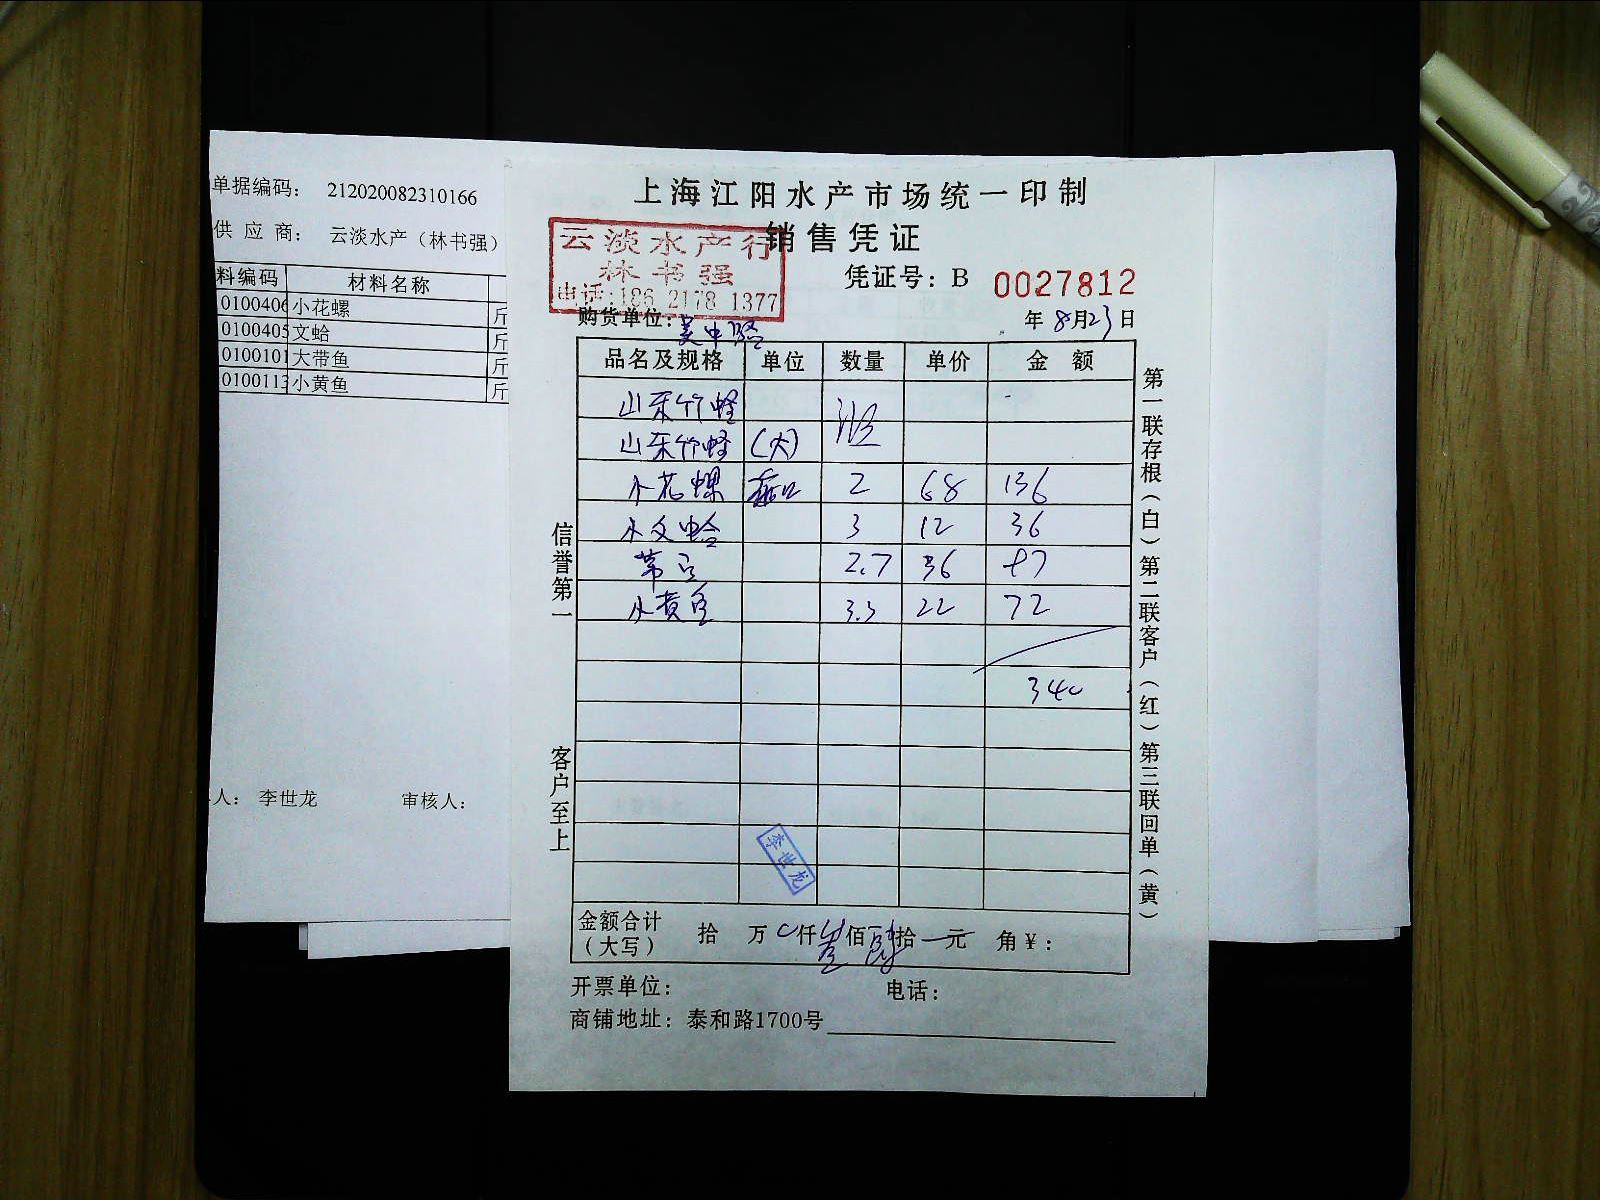 单据编码： 212020082310166
供 应 商： 云淡水产（林书强）
料编码 材料名称
0100406 小花螺 斤
0100405 文蛤 斤
0100101 大带鱼 斤
0100113 小黄鱼 斤
人： 李世龙 审核人：
上海江阳水产市场统一印制
销售凭证
云淡水产行
林书强
电话:186 2178 1377
凭证号：B 0027812
购货单位: 吴中路
年 8月23日
品名及规格 单位 数量 单价 金 额
山东竹蛏
山东竹蛏 (大)
小花螺 2 68 136
小文蛤 3 12 36
带鱼 2.7 36 97
小黄鱼 3.3 22 72
340
李世龙
金额合计
（大写） 拾 万 仟叁佰肆拾 元 角￥：
开票单位： 电话：
商铺地址：泰和路1700号
信誉第一
客户至上
第一联存根（白）第二联客户（红）第三联回单（黄）